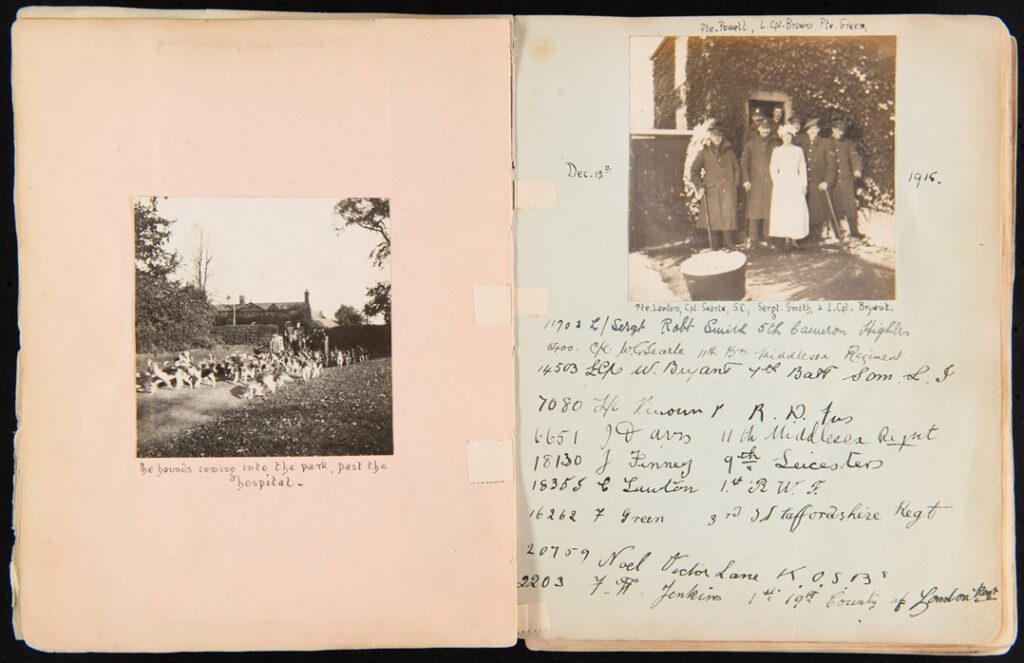 The hounds coming into the park, past the
hospital -
Pte. Powell, L. Cpl. Brown Pte. Green,
Dec. 13th
1915.
Pte. Lawton, Cpl. Searle, S.C., Sergt. Smith, & L. Cpl. Bryant.
11703 L/Sergt Robt Smith 5th Cameron Highlrs
W G Searle 11th Bn Middlesex Regiment.
14503 L Cpl W. Bryant 7th Batt Som. L. I
7080 R. D. Fus
6651 J Davis 11th Middlesex Regmt
18130 J Finney 9th Leicesters
18355 C Lawton 1st R W F.
16262 F Green 3rd S. Staffordshire Regt
20759 Noel Victor Lane K.O.S.Bs
2203 F. W. Jenkins 1st 19th County of London Regt